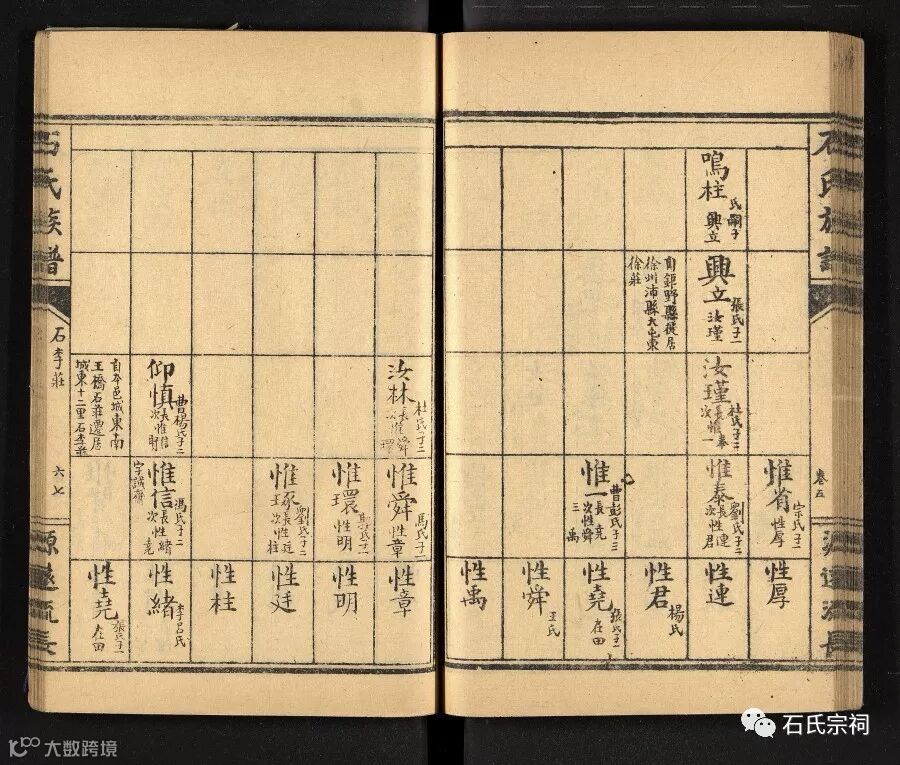 石氏族譜
卷五
源遠流長
鳴柱
氏嗣子
興立
興立
張氏子一
汝瑾
自鉅野縣徙居
徐州沛縣大屯東
徐莊
汝瑾
杜氏子二
長惟泰
次惟一
惟省
宗氏子一
性厚
惟泰
劉氏子二
長性連
次性君
惟一
曹彭氏子三
長性堯
次性舜
三禹
性厚
性連
性君
楊氏
性堯
張氏子一
在田
性舜
王氏
性禹
汝林
杜氏子二
長惟舜
次環
仰慎
曹楊氏子二
長惟信
次惟明
自本邑城東南
王橋石莊遷居
城東十二里石李莊
惟舜
馬氏子一
性章
惟環
子一
性明
惟琢
劉氏子二
長性廷
次性柱
惟信
馮氏子二
長性緒
次性堯
字誠齋
性章
性明
性廷
性柱
性緒
李呂氏
性堯
張氏子一
在田
石氏族譜
石李莊
六七
源遠流長
石氏宗祠
10100 大数跨境